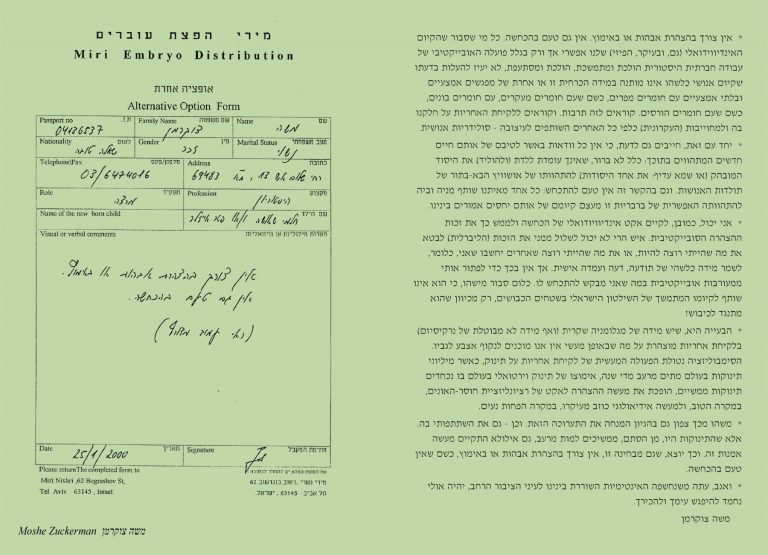 מירי הפצת עוברים
Miri Embryo Distribution
אופציה אחרת
Alternative Option Form
Passport no ת.ז. Family Name שם משפחה Name שם
04126537 צוקרמן משה
Nationality לאום Gender מין Marital Status מצב משפחתי
שאלה טובה זכר נשוי
Telephone/Fax טלפון/פקס Address כתובת
03/6474016 69483
Role תפקיד Profession מקצוע
מרצה היסטוריון
Name of the new born child שם הילד
Visual or verbal comments הערות מילוליות או ויזואליות
אין צורך בהצהרת אבהות או באימוץ.
אין גם טעם בהכחשה.
Date תאריך Signature חתימת המקבל
25/1/2000
Please returnThe completed form to את הטופס המלא יש להחזיר לכתובת
Miri Nishri ,62 Bograshov St, מירי נשרי, רחוב בוגרשוב 62
Tel Aviv 63145 , Israel. תל אביב 63145, ישראל.
Moshe Zuckerman משה צוקרמן
* אין צורך בהצהרת אבהות או באימוץ. אין גם טעם בהכחשה. כל מי שסבור שהקיום
האינדיווידואלי (גם, ובעיקר, הפיזי) שלנו אפשרי אך ורק בגלל פועלה האובייקטיבי של
עבודה חברתית היסטורית הולכת ומתמשכת, הולכת ומסתעפת, לא יעיז להעלות בדעתו
שקיום אנושי כלשהו אינו מותנה במידה הכרחית זו או אחרת של מפגשים אמצעיים
ובלתי אמצעיים עם חומרים מפרים, כשם שעם חומרים מעקרים, עם חומרים בונים,
כשם שעם חומרים הורסים. קוראים לזה תרבות. וקוראים ללקיחת האחריות על חלקנו
בה ולמחוייבות (העקרונית) כלפי כל האחרים השותפים לעיצובה - סולידריות אנושית.
* יחד עם זאת, חייבים גם לדעת, כי אין כל וודאות באשר לטיבם של אותם חיים
חדשים המתהווים בתוכך. כלל לא ברור, שאינך עומדת ללדת (ולהוליד) את היסוד
המובהק (או שמא עדיף: את אחד היסודות) להתהוותו של אושוויץ הבא-בתור של
תולדות האנושות. וגם בהקשר זה אין טעם להתכחש: כל אחד מאיתנו שותף מניה וביה
להתהוותה האפשרית של ברבריות זו מעצם קיומם של אותם יחסים אמורים בינינו.
* אני יכול, כמובן, לקיים אקט אינדיווידואלי של הכחשה ולממש כך את זכות
ההצהרה הסובייקטיבית. איש הרי לא יכול לשלול ממני את הזכות (הליברלית) לבטא
את מה שהייתי רוצה להיות, או את מה שהייתי רוצה שאחרים יחשבו שאני, כלומר,
לשמר מידה כלשהי של תודעה, דעה ועמדה אישית. אך אין בכך כדי לפטור אותי
ממעורבות אובייקטיבית במה שאני מבקש להתכחש לו. כלום סבור מישהו, כי הוא אינו
שותף לקיומו המתמשך של השילטון הישראלי בשטחים הכבושים, רק מכיוון שהוא
מתנגד לכיבוש?
* הבעייה היא, שיש מידה של מגלומניה שקרית (ואף מידה לא מבוטלת של נרקיסיזם)
בלקיחת אחריות מוצהרת על מה שבאופן מעשי אין אנו מוכנים לנקוף אצבע לגביו.
הסימבוליזציה נטולת הפעולה המעשית של לקיחת אחריות על תינוק, כאשר מיליוני
תינוקות בעולם מתים מרעב מדי שנה, אימוצו של תינוק וירטואלי בעולם בו נכחדים
תינוקות ממשיים, הופכת את מעשה ההצהרה לאקט של רציונליזציית חוסר-האונים,
במקרה הטוב, ולמעשה אידיאולוגי כוזב מעיקרו, במקרה הפחות נעים.
* משהו מכך צפון גם בהגיון המנחה את התערוכה הזאת. וכן - גם את השתתפותי בה.
אלא שהתינוקות היו, מן הסתם, ממשיכים למות מרעב, גם אילולא התקיים מעשה
אמנות זה. וכך יוצא, שגם מבחינה זו, אין צורך בהצהרת אבהות או באימוץ, כשם שאין
טעם בהכחשה.
* ואגב, עתה משנחשפה האינטימיות השוררת בינינו לעיני הציבור הרחב, יהיה אולי
נחמד להיפגש עימך ולהכירך.
משה צוקרמן